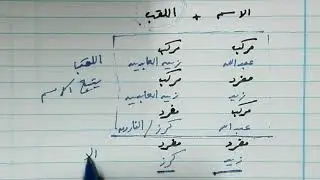 الاسم + اللقب
مركب مركب
عبدالله زين العابدين اللقب
مفرد مركب يتبع الاسم
زيد زين العابدين
مركب مفرد
عبدالله كرز/الفاروق
مفرد مفرد
زيد كرز